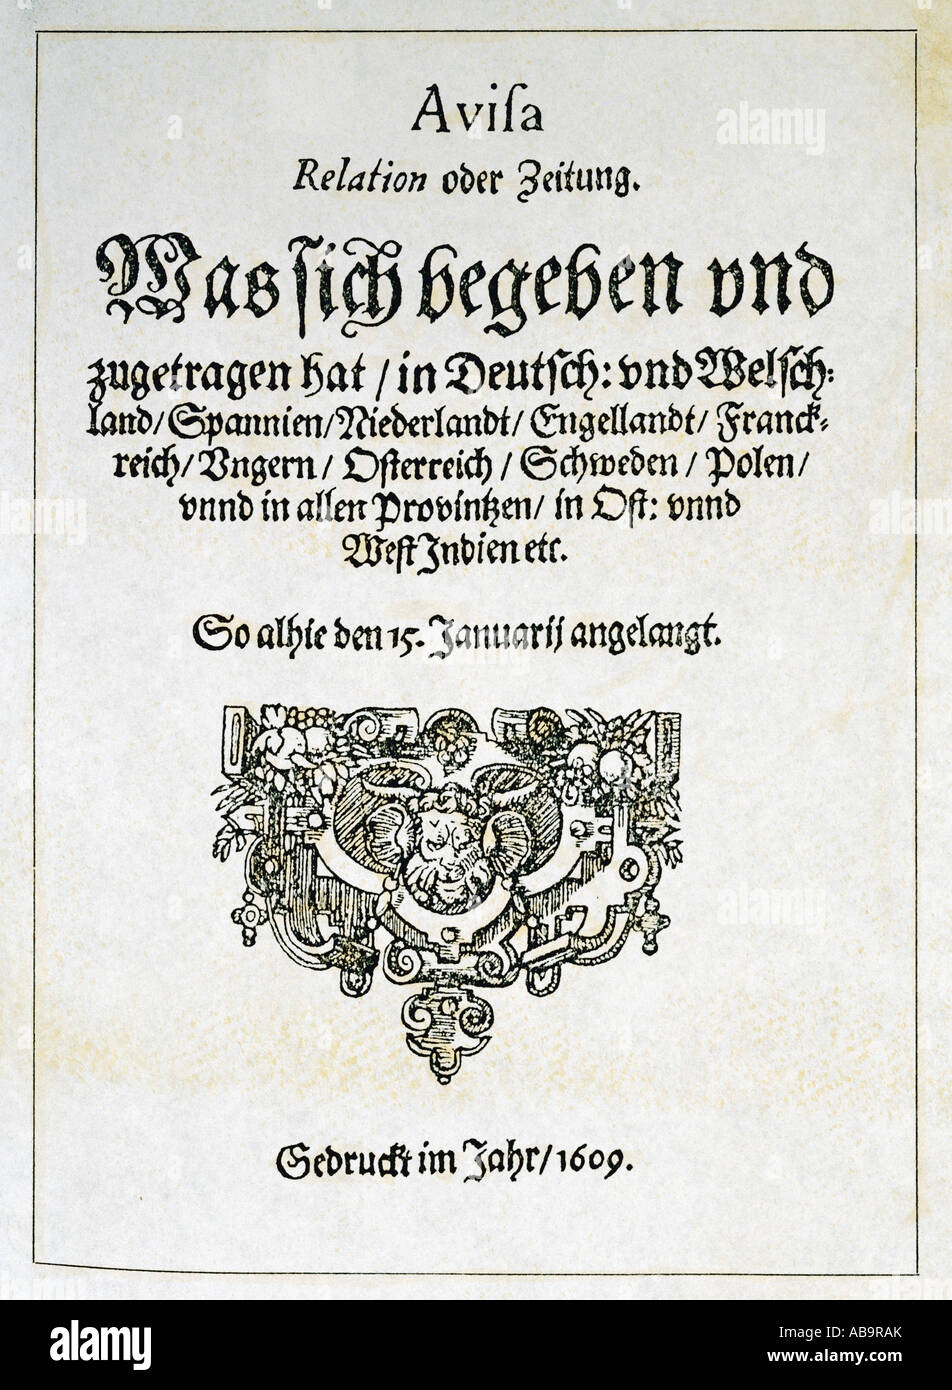 Aviſa
Relation oder Zeitung.
Was ſich begeben vnd
zugetragen hat / in Deutſch: vnd Welſch⸗
land / Spannien / Niederlandt / Engellandt / Franck⸗
reich / Vngern / Oſterreich / Schweden / Polen /
vnnd in allen Provintzen / in Oſt: vnnd
Weſt Indien etc.
So alhie den 15. Januarij angelangt.
Gedruckt im Jahr / 1609.
alamy
Image ID: AB9RAK
www.alamy.com